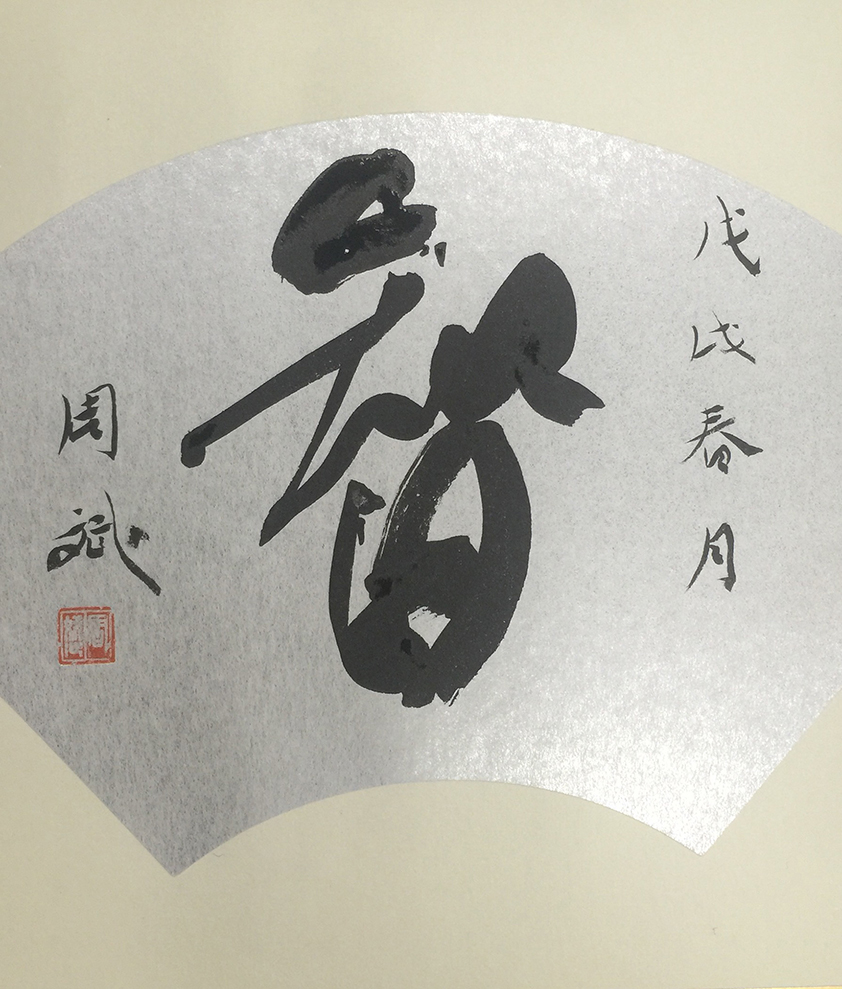 戊戌春月
智
周斌